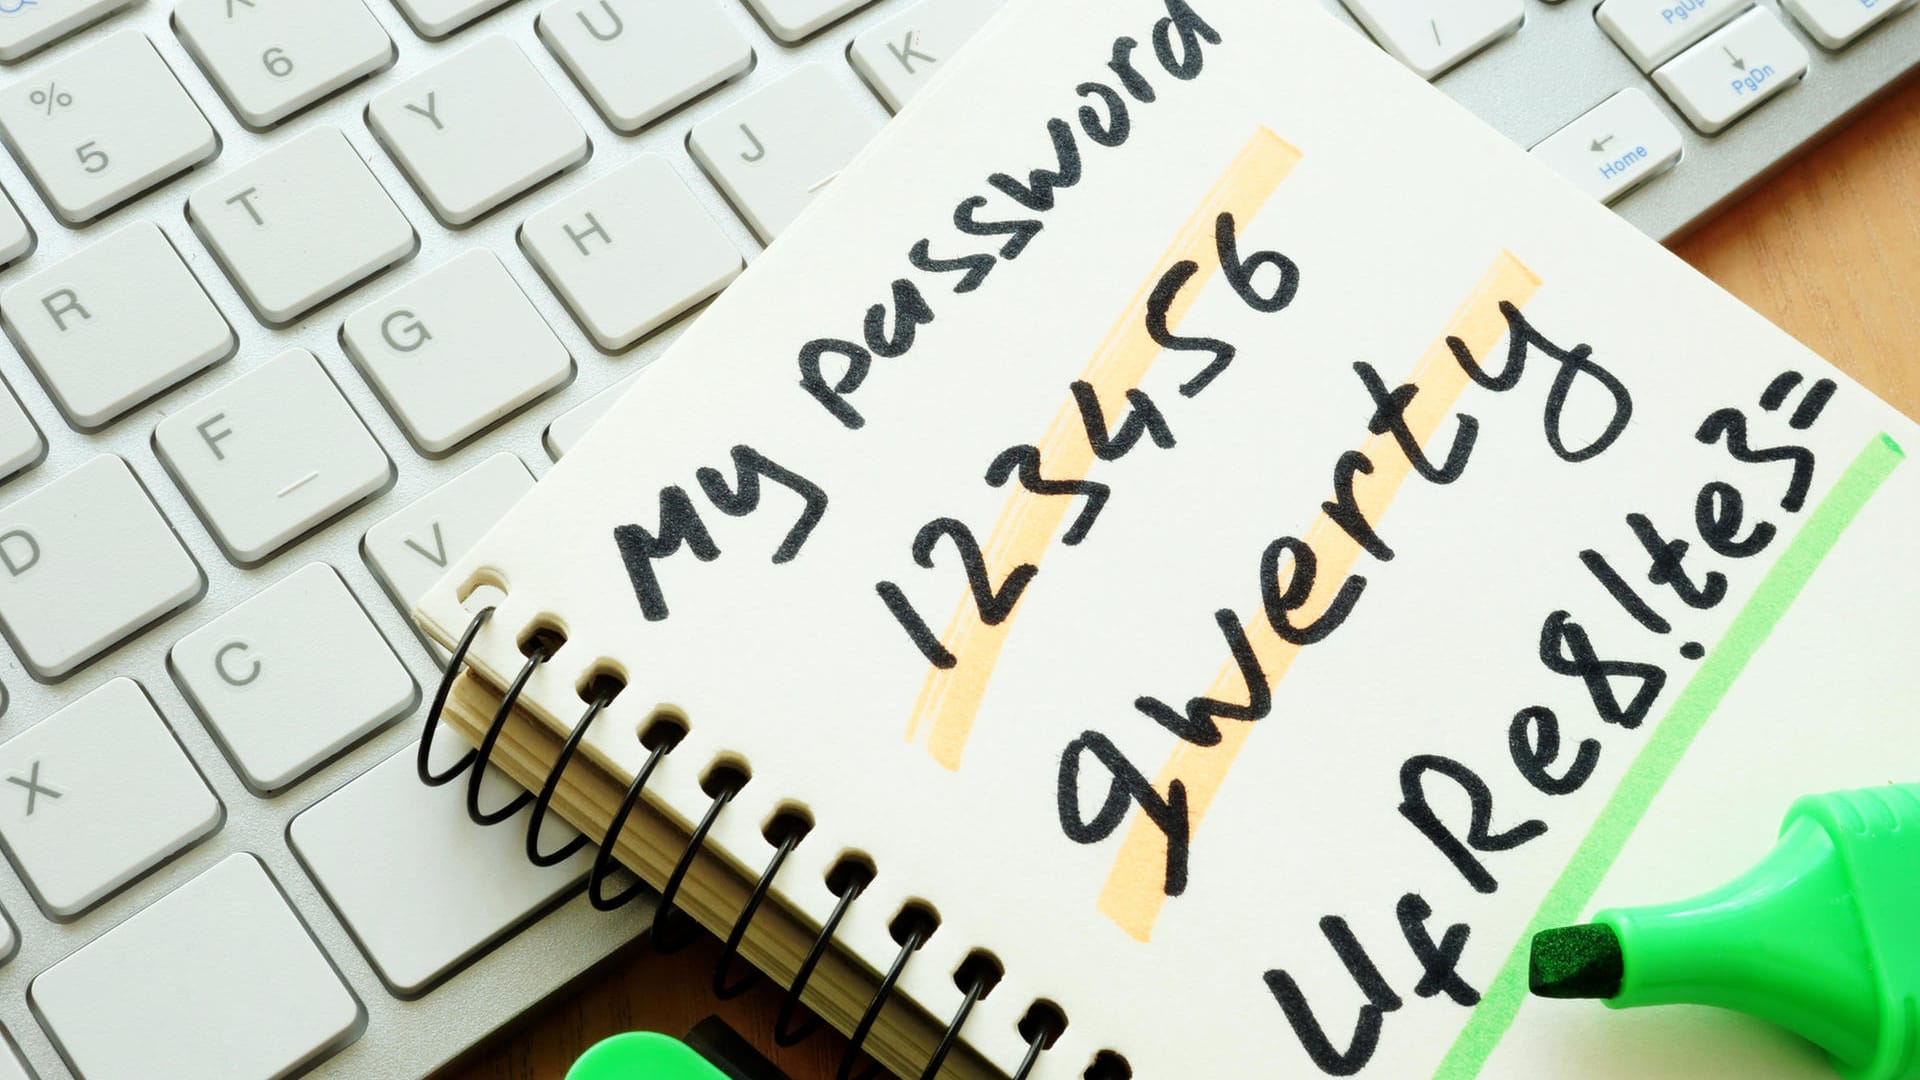 My password
123456
qwerty
UfRe8!te3=
%
5
6
R
T
Y
U
D
F
G
H
J
K
X
C
V
PgUp
↓
PgDn
←
Home